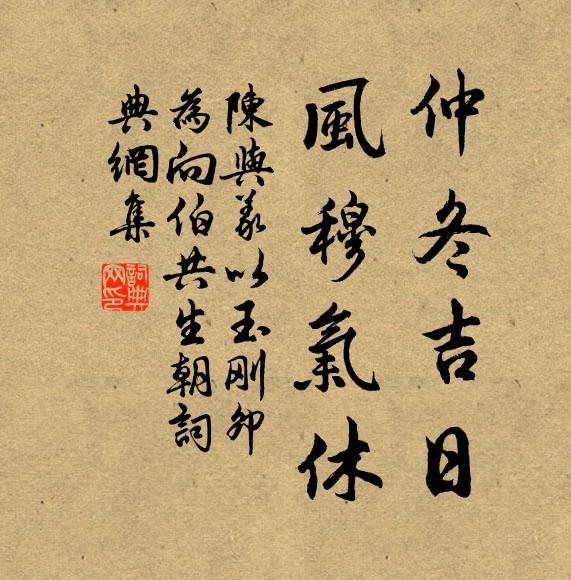 仲冬吉日
風穆氣休
陳與義以玉刚卯
為向伯共生朝詞
典網集
詞典網印